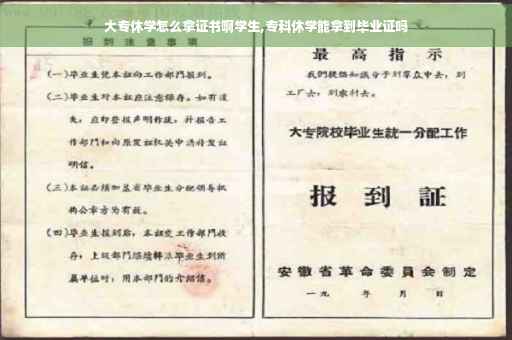 大专休学怎么拿证书啊学生,专科休学能拿到毕业证吗
报到注意事项
(一)毕业生凭本证向工作部门报到。
(二)毕业生对本证应注意保存。如有遗
失,应即登报声明作废,并报告工
作部门和向原发证机关申请补发证
明信。
(三)本证必须加盖省毕业生分配领导机
构公章方为有效。
(四)毕业生报到后,本证交工作部门收
存;上级部门
属单位时,用本部门的介绍信。
最高指示
我们提倡知识分子到群众中去,到
工厂去,到农村去。
大专院校毕业生統一分配工作
报到証
安徽省革命委員会制定
一九 年 月 日